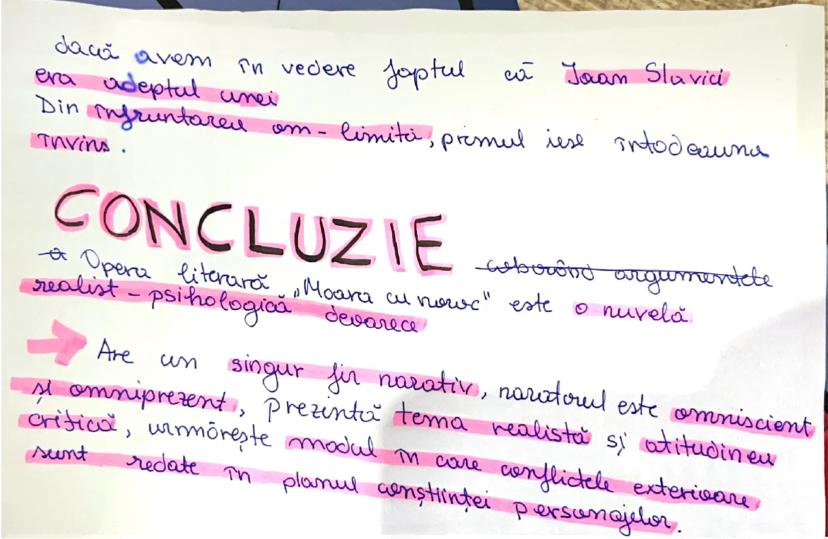 dacă avem în vedere faptul că Ioan Slavici
era adeptul unei
Din înfruntarea om-limită, primul iese întodeauna
învins.
CONCLUZIE
Opera literară „Moara cu noroc" este o nuvelă
realist-psihologică deoarece
Are un singur fir narativ, naratorul este omniscient
și omniprezent, prezintă tema realistă și atitudinea
critică, urmărește modul în care conflictele exterioare
sunt redate în planul conștiinței personajelor.